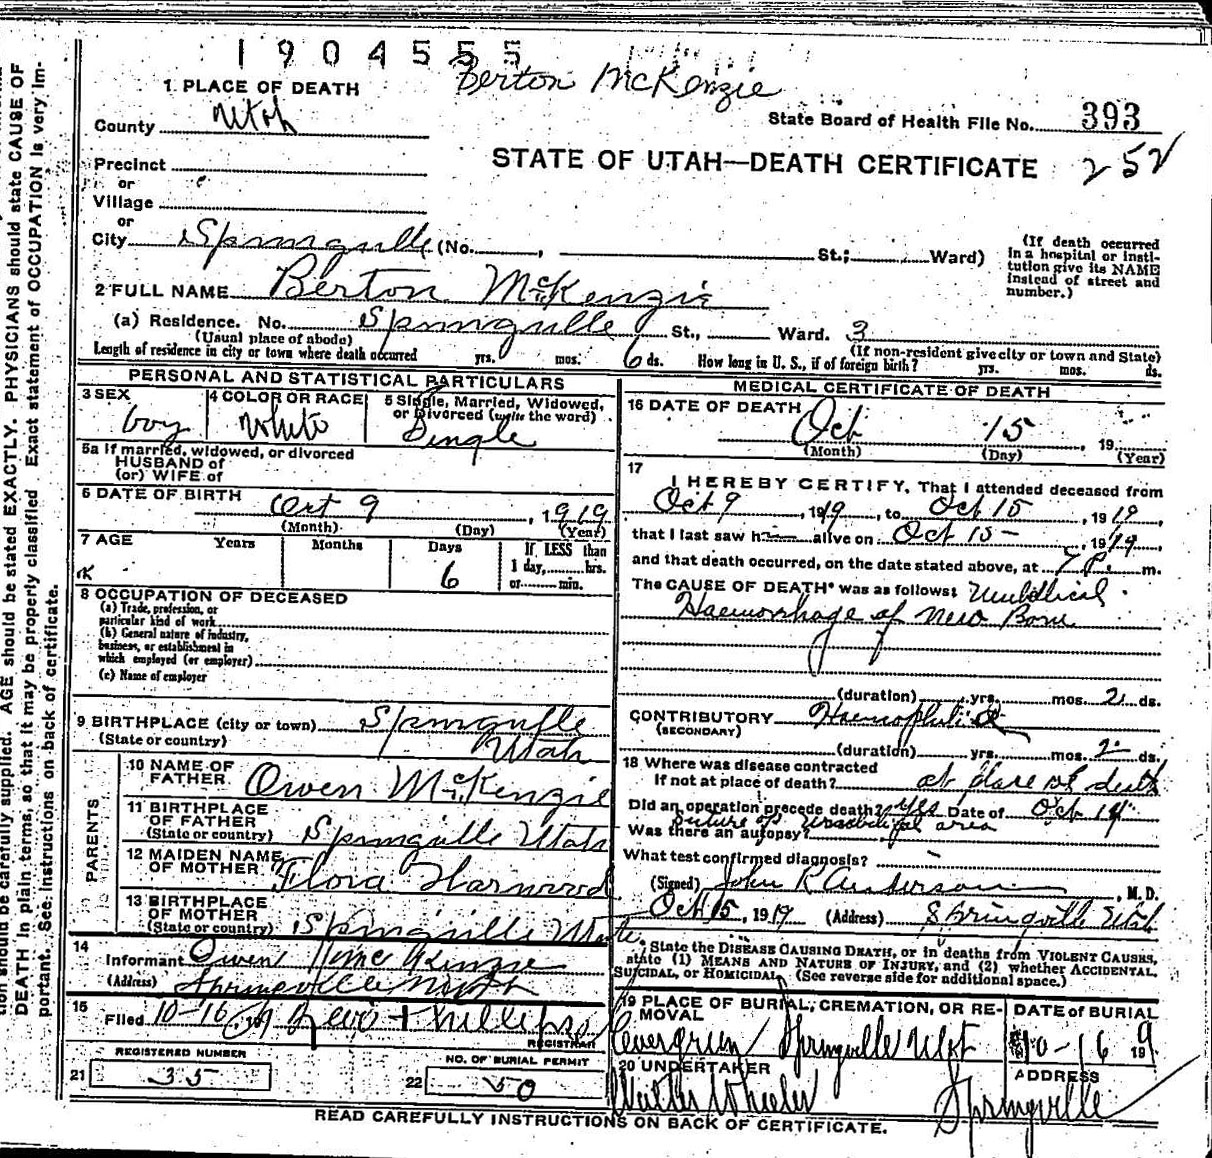 1904555
Berton McKenzie
1 PLACE OF DEATH
County Utah
State Board of Health File No. 393
Precinct
STATE OF UTAH—DEATH CERTIFICATE 252
or
Village
or
City Springville (No. , St.; Ward)
(If death occurred in a hospital or institution give its NAME instead of street and number.)
2 FULL NAME Berton McKenzie
(a) Residence. No. Springville St., Ward. 3
(Usual place of abode) (If non-resident give city or town and State)
Length of residence in city or town where death occurred yrs. mos. 6 ds. How long in U. S., if of foreign birth? yrs. mos. ds.
PERSONAL AND STATISTICAL PARTICULARS
3 SEX boy
4 COLOR OR RACE White
5 Single, Married, Widowed, or Divorced (write the word) Single
5a If married, widowed, or divorced
HUSBAND of
(or) WIFE of
6 DATE OF BIRTH Oct 9, 1919
(Month) (Day) (Year)
7 AGE Years Months Days 6 If LESS than 1 day, hrs. or min.
8 OCCUPATION OF DECEASED
(a) Trade, profession, or
particular kind of work
(b) General nature of industry,
business, or establishment in
which employed (or employer)
(c) Name of employer
9 BIRTHPLACE (city or town) Springville
(State or country) Utah
PARENTS
10 NAME OF FATHER Owen McKenzie
11 BIRTHPLACE OF FATHER (State or country) Springville Utah
12 MAIDEN NAME OF MOTHER Flora Harwood
13 BIRTHPLACE OF MOTHER (State or country) Springville Utah
14 Informant Owen McKenzie
(Address) Springville
15 Filed 10-16, 19 REGISTRAR
REGISTERED NUMBER
21 35
NO. OF BURIAL PERMIT
22 50
MEDICAL CERTIFICATE OF DEATH
16 DATE OF DEATH Oct 15, 19
(Month) (Day) (Year)
17 I HEREBY CERTIFY, That I attended deceased from
Oct 9, 1919, to Oct 15, 1919,
that I last saw h alive on Oct 15, 1919,
and that death occurred, on the date stated above, at 7 P. m.
The CAUSE OF DEATH* was as follows: Umbilical
Haemorrhage of New Born
(duration) yrs. mos. 2 ds.
CONTRIBUTORY Haemophilia
(SECONDARY)
(duration) yrs. mos. 2 ds.
18 Where was disease contracted
If not at place of death? at place of death
Did an operation precede death? Yes Date of Oct 14
Suture of Umbilical area
Was there an autopsy?
What test confirmed diagnosis?
(Signed) John R Anderson, M. D.
Oct 15, 1919 (Address) Springville Utah
State the DISEASE CAUSING DEATH, or in deaths from VIOLENT CAUSES,
state (1) MEANS AND NATURE OF INJURY, and (2) whether ACCIDENTAL,
SUICIDAL, or HOMICIDAL. (See reverse side for additional space.)
19 PLACE OF BURIAL, CREMATION, OR REMOVAL
Evergreen Springville Utah
DATE of BURIAL
10-16 1919
20 UNDERTAKER
Walter Wheeler
ADDRESS
Springville
READ CAREFULLY INSTRUCTIONS ON BACK OF CERTIFICATE.
tion should be carefully supplied. AGE should be stated EXACTLY. PHYSICIANS should state CAUSE OF
DEATH in plain terms, so that it may be properly classified. Exact statement of OCCUPATION is very im-
portant. See instructions on back of certificate.